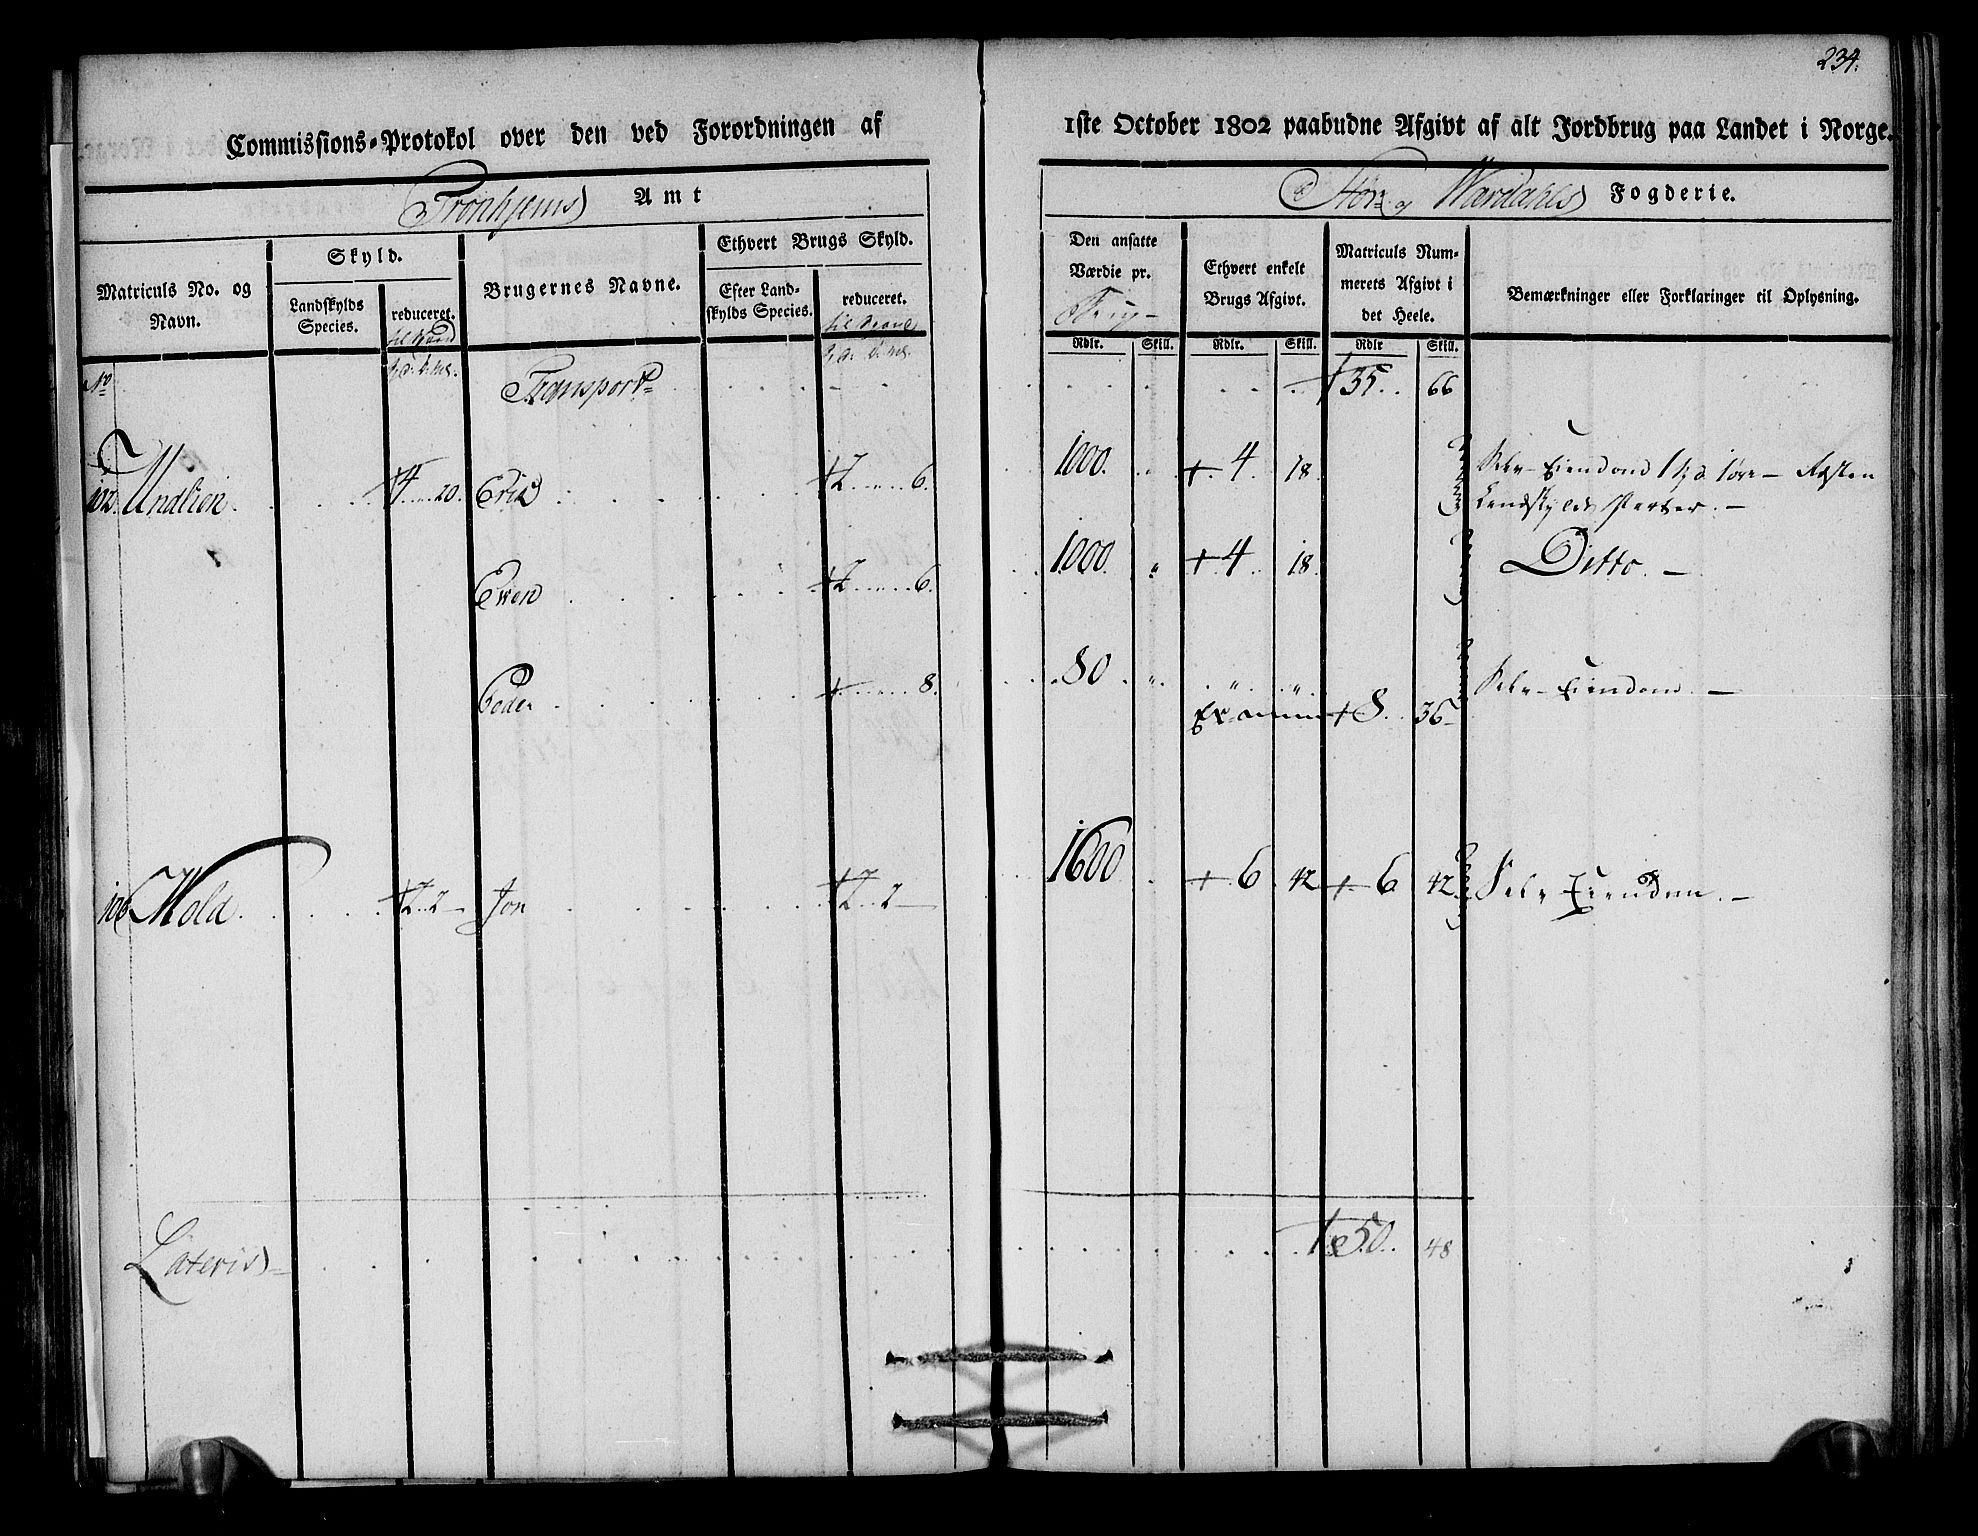 234.
Commissions-Protokol over den ved Forordningen af 1ste October 1802 paabudne Afgivt af alt Jordbrug paa Landet i Norge.
Tronhjems Amt
Stør og Wærdahls Fogderie.
Matriculs No. og Navn.
Skyld.
Landskylds Species.
reduceret.
Brugernes Navne.
Ethvert Brugs Skyld.
Efter Landskylds Species.
reduceret.
Den ansatte Værdie pr. Brug
Ethvert enkelt Brugs Afgivt.
Matriculs Nummerets Afgivt i det Heele.
Bemærkninger eller Forklaringer til Oplysning.
Rdlr. Skill. Rdlr. Skill. Rdlr Skill.
No
Transport 35. 66
102. Undlien 4 20. Eric 2 6. 1000. 4 18. Selv-Eiendom 1 Resten
Landskylds Parter.
Ewen 2 6. 1000. 4 18. Ditto.
Peder 8. 80. " " " Selv-Eiendom.
8. 36
106 Mola 2. 2 Jon 2. 2 1600 6 42 6 42 Selv Eiendom.
Lateris 50. 48